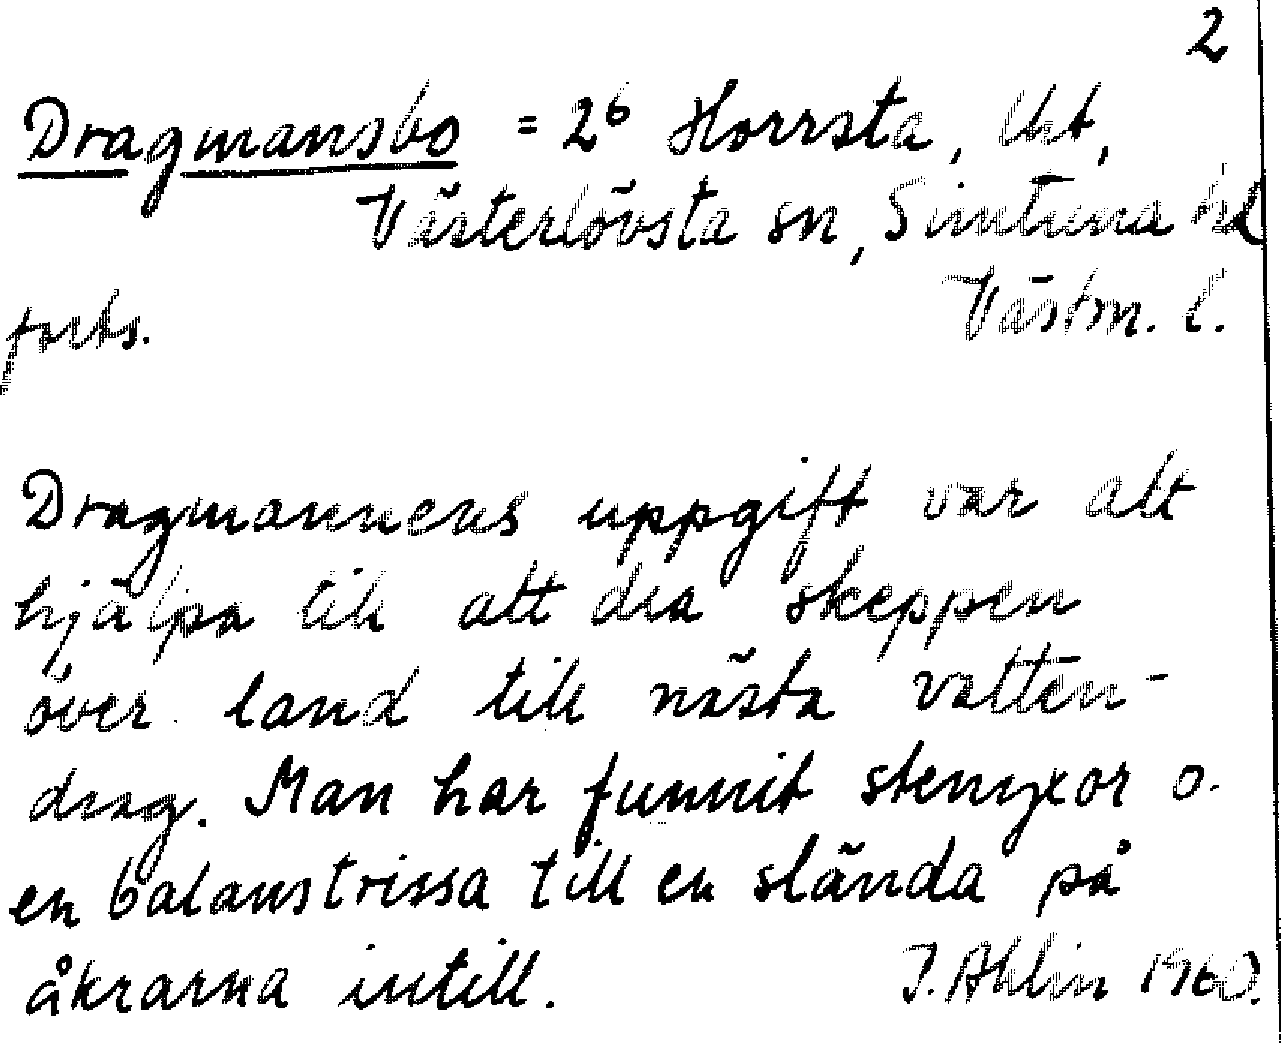 2
Dragmansbo = 2⁶ Horrsta, lht,
Västerlövsta sn, Simtuna hd
Västm. l.
forts.
Dragmannens uppgift var att
hjälpa till att dra skeppen
över land till nästa vatten-
drag. Man har funnit stenyxor o.
en balanstrissa till en slända på
åkrarna intill.
J. Ahlin 1960.